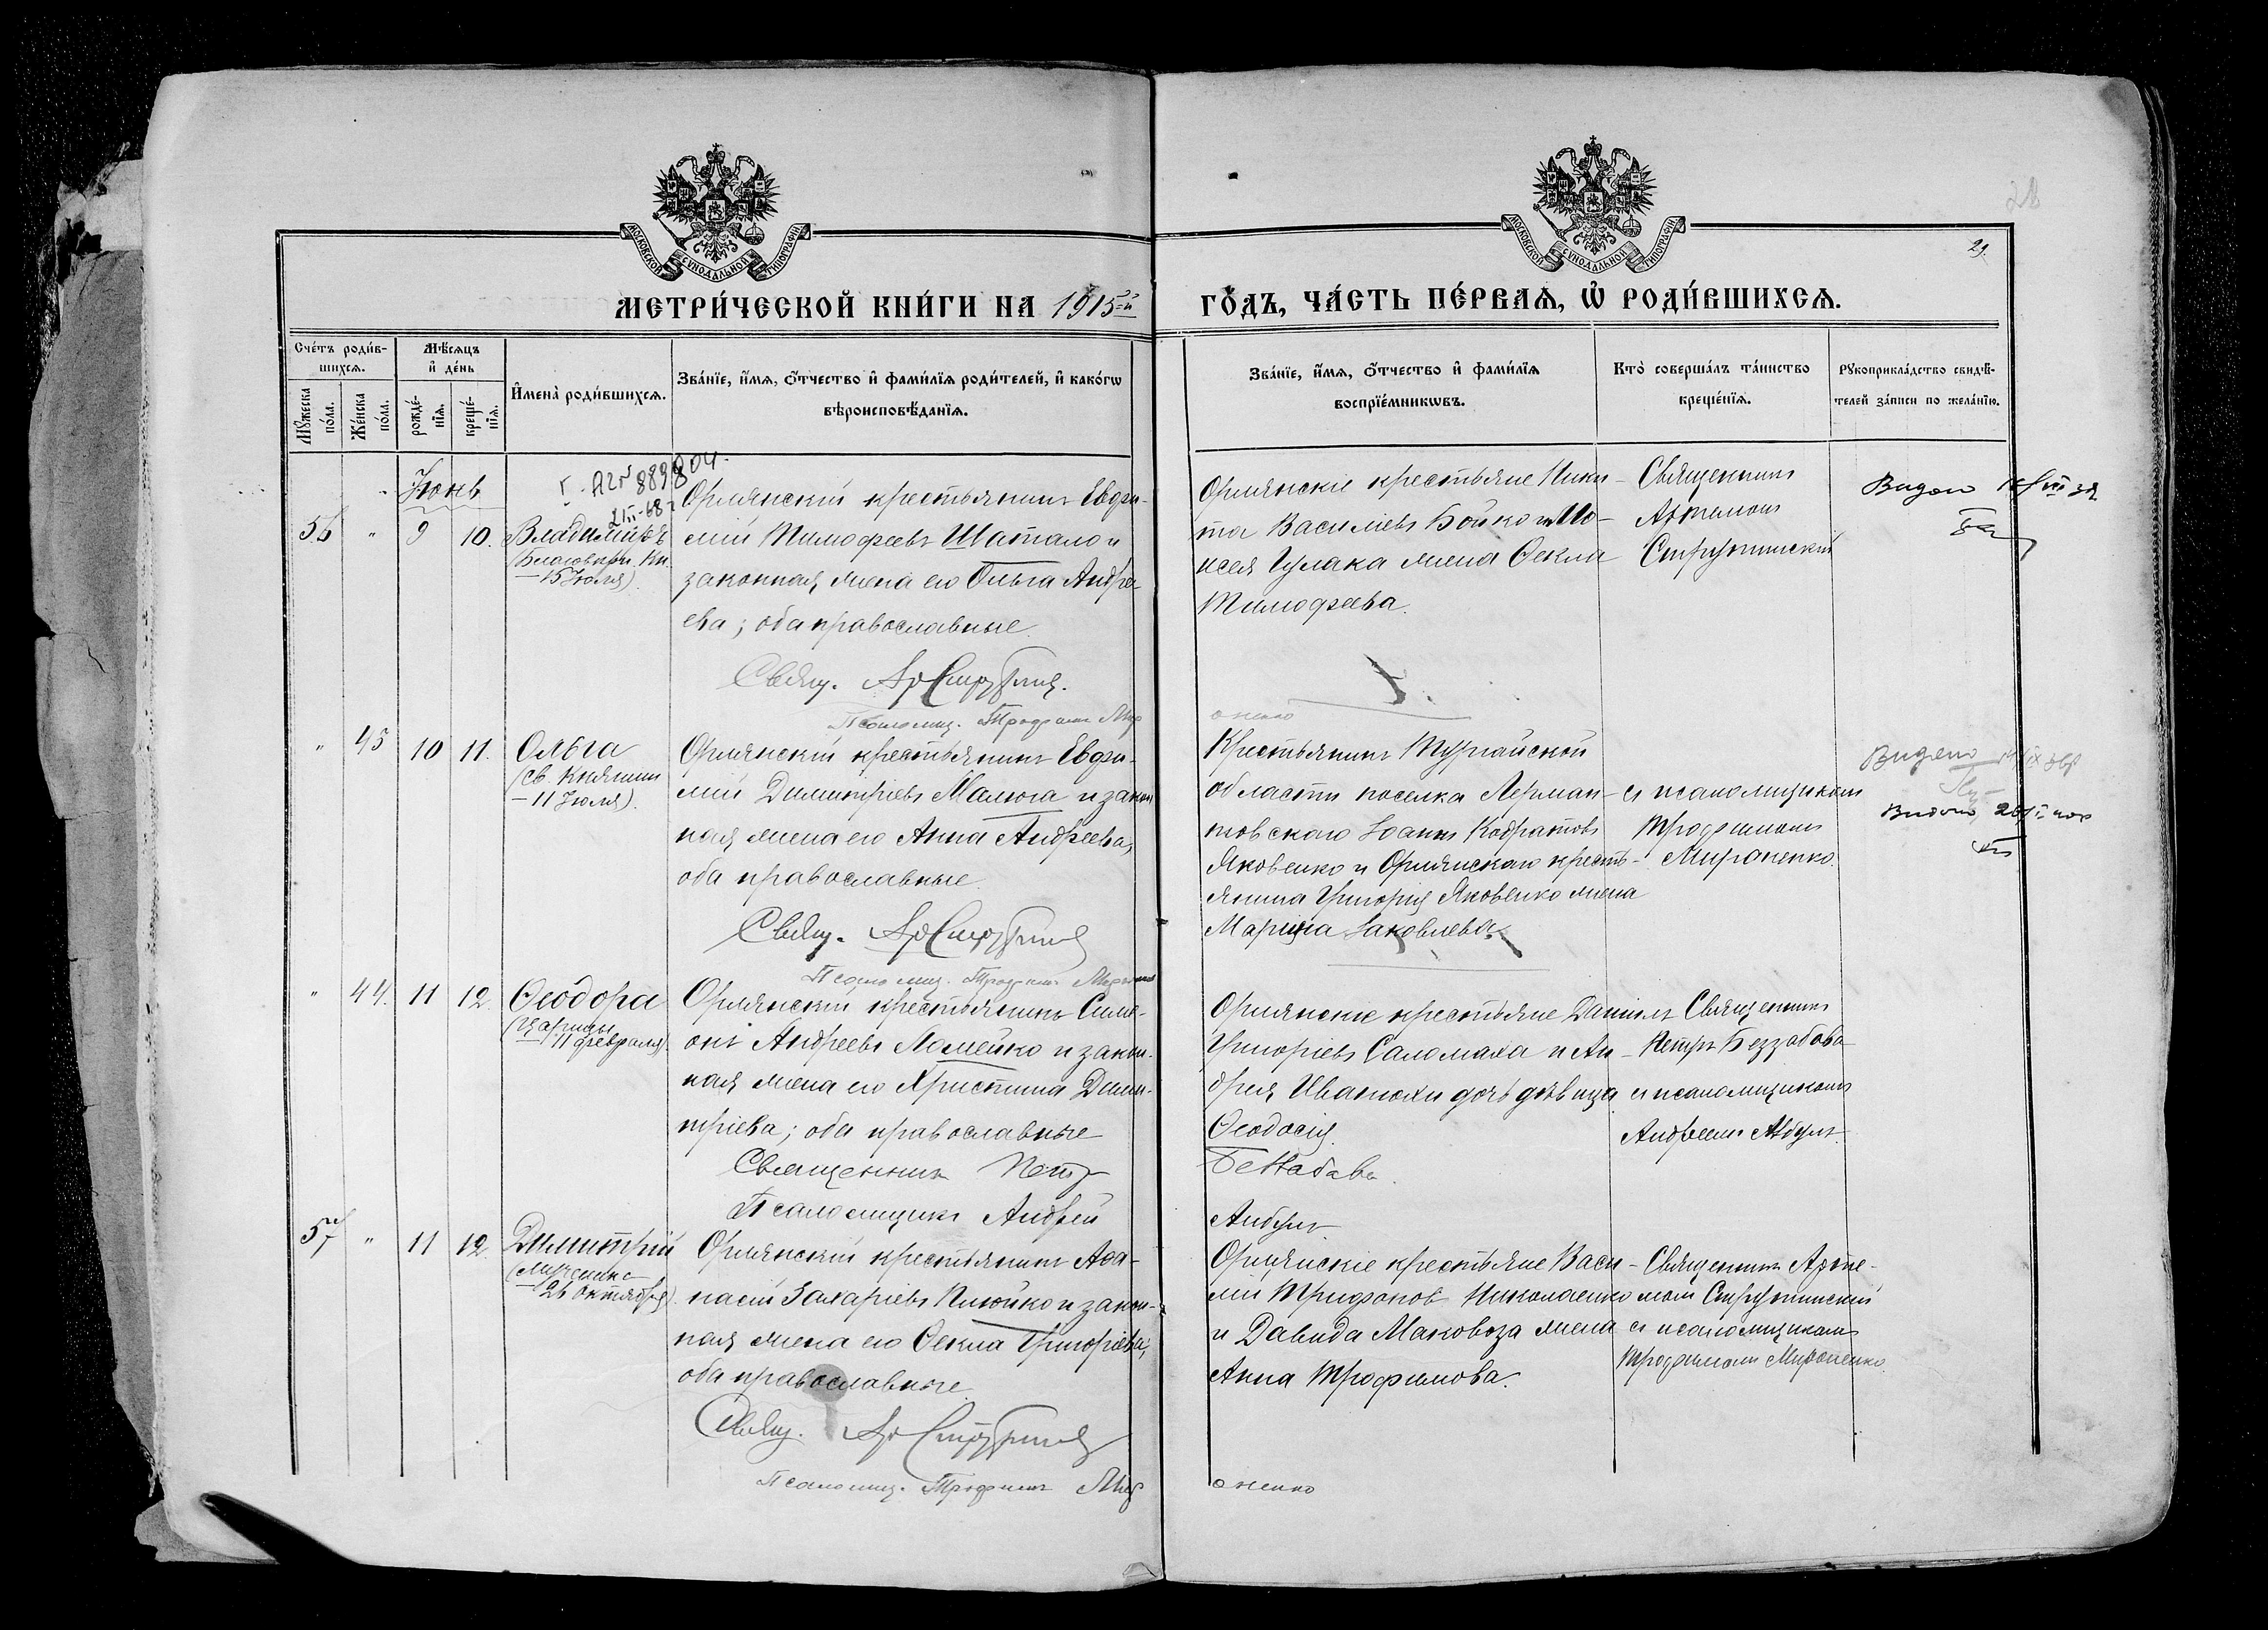 МОСКОВСКОЙ СѴНОДАЛЬНОЙ ТИПОГРАФІИ
МОСКОВСКОЙ СѴНОДАЛЬНОЙ ТИПОГРАФІИ
29.
МЕТРИ́ЧЕСКОЙ КНИ́ГИ НА 1915-й
ГО́ДЪ, ЧА́СТЬ ПЕ́РВАѦ, Ѡ҆ РОДИ́ВШИХСѦ.
Сче́тъ роди́в-
шихсѧ.
Мꙋ́жеска по́ла.
Же́нска по́ла.
Мѣ́сѧцъ и҆ де́нь
рожде́-
нїѧ.
креще́-
нїѧ.
И҆мена̀ роди́вшихсѧ.
Зва́нїе, и҆́мѧ, ѻ҆́тчество и҆ фами́лїѧ роди́телей, и҆ како́гѡ
вѣроисповѣ́данїѧ.
Зва́нїе, и҆́мѧ, ѻ҆́тчество и҆ фами́лїѧ
воспрїе́мникѡвъ.
Кто̀ соверша́лъ та́инство
креще́нїѧ.
Рꙋкоприкла́дство свидѣ́-
телей за́писи по жела́нїю.
Іюнь
56 " 9 10.
Владиміръ
15 Іюля)
Орлянскій крестьянинъ Евфи-
мій Тимофеевъ Шатало и
законная жена его Ольга Андре-
ева; оба православные.
Свящ. Ар Струтинск.
Псаломщ. Трофимъ Мир
оненко
Орлянскіе крестьяне Ники-
та Василіевъ Бойко и Мо-
исея Гулака жена Ѳекла
Тимофеева.
Священникъ
Артемонъ
Струтинскій
Видано
" 45 10 11.
Ольга
(св. Княгини
- 11 Іюля).
Орлянскій крестьянинъ Евфи-
мій Димитріевъ Малюга и закон
ная жена его Анна Андреева,
оба православные.
Свящ. Ар Струтинск
Псаломщ. Трофимъ
Крестьянинъ Тургайской
области поселка Лерман-
товскаго Іоаннъ Кодратовъ
Яковенко и Орлянскаго кресть-
янина Григорія Яковенко жена
Марина Іаковлева.
съ псаломщикомъ
Трофимомъ
Мироненко.
Видано
Видано
" 44. 11 12
Ѳеодора
(Царицы
11 февраля).
Орлянскій крестьянинъ Симе-
онъ Андреевъ Ломейко и закон-
ная жена его Христина Дими-
тріева; оба православные
Священникъ Петръ
Псаломщикъ Андрей
Орлянскіе крестьяне Даніилъ
Григоріевъ Саломаха и Ан-
дрея Иванюхи дочь дѣвица
Ѳеодосія.
Священникъ
Петръ Беззабова
съ псаломщикомъ
Андреемъ
57 " 11 12
Димитрій
(мученика
26 октября).
Орлянскій крестьянинъ Аѳа-
насій Захаріевъ Плюйко и закон-
ная жена его Ѳекла Григоріева;
оба православные.
Свящ. Ар Струтинск
Псаломщ. Трофимъ Мир
оненко
Орлянскіе крестьяне Васи-
лій Трифоновъ Николаенко
и Давида Маковоза жена
Анна Трофимова.
Священникъ Арте-
монъ Струтинскій
съ псаломщикомъ
Трофимомъ Мироненко.